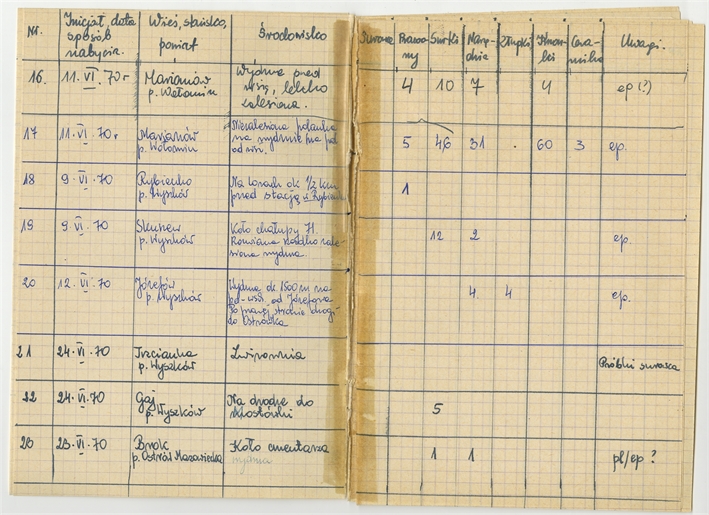 Nr.
Inicjał, data
sposób
nabycia.
Wieś, stanisko,
powiat
Środowisko
Surowce
Rdzenie
Wiórki
Narzę-
dzia
Złupki
Cera-
mika
Uwagi.
16.
11. VI. 70 r
Marianów
p. Wołomin
Wydma przed
wsią, lekko
zalesiona.
4
10
7
4
ep (?)
17
11. VI. 70 r
Marjanów
p. Wołomin
Niezalesiona polanka
na wydmie na płd
od wsi.
5
46
31
.
60
3
ep.
18
9. VI. 70
Rybienko
p. Wyszków
Na torach ok 1/2 km
przed stacją w Rybienku
1
19
9. VI. 70
p. Wyszków
Koło chałupy 71.
Rozwiana rzadko zale-
siona wydma
12
2
ep.
20
12. VI. 70
Józefów
p. Wyszków
Wydma ok. 1500 m na
od Józefowa
Po prawej stronie drogi
do Ostrówka
4
4
ep.
21
24. VI. 70
Trzcianka
p. Wyszków
Żwirownia
Próbki surowca
22
24. VI. 70
Gaj
p. Wyszków
Na drodze do
5
23
23. VI. 70
Brok
p. Ostrów Mazowiecka
Koło cmentarza
wydma
1
1
pl/ep ?